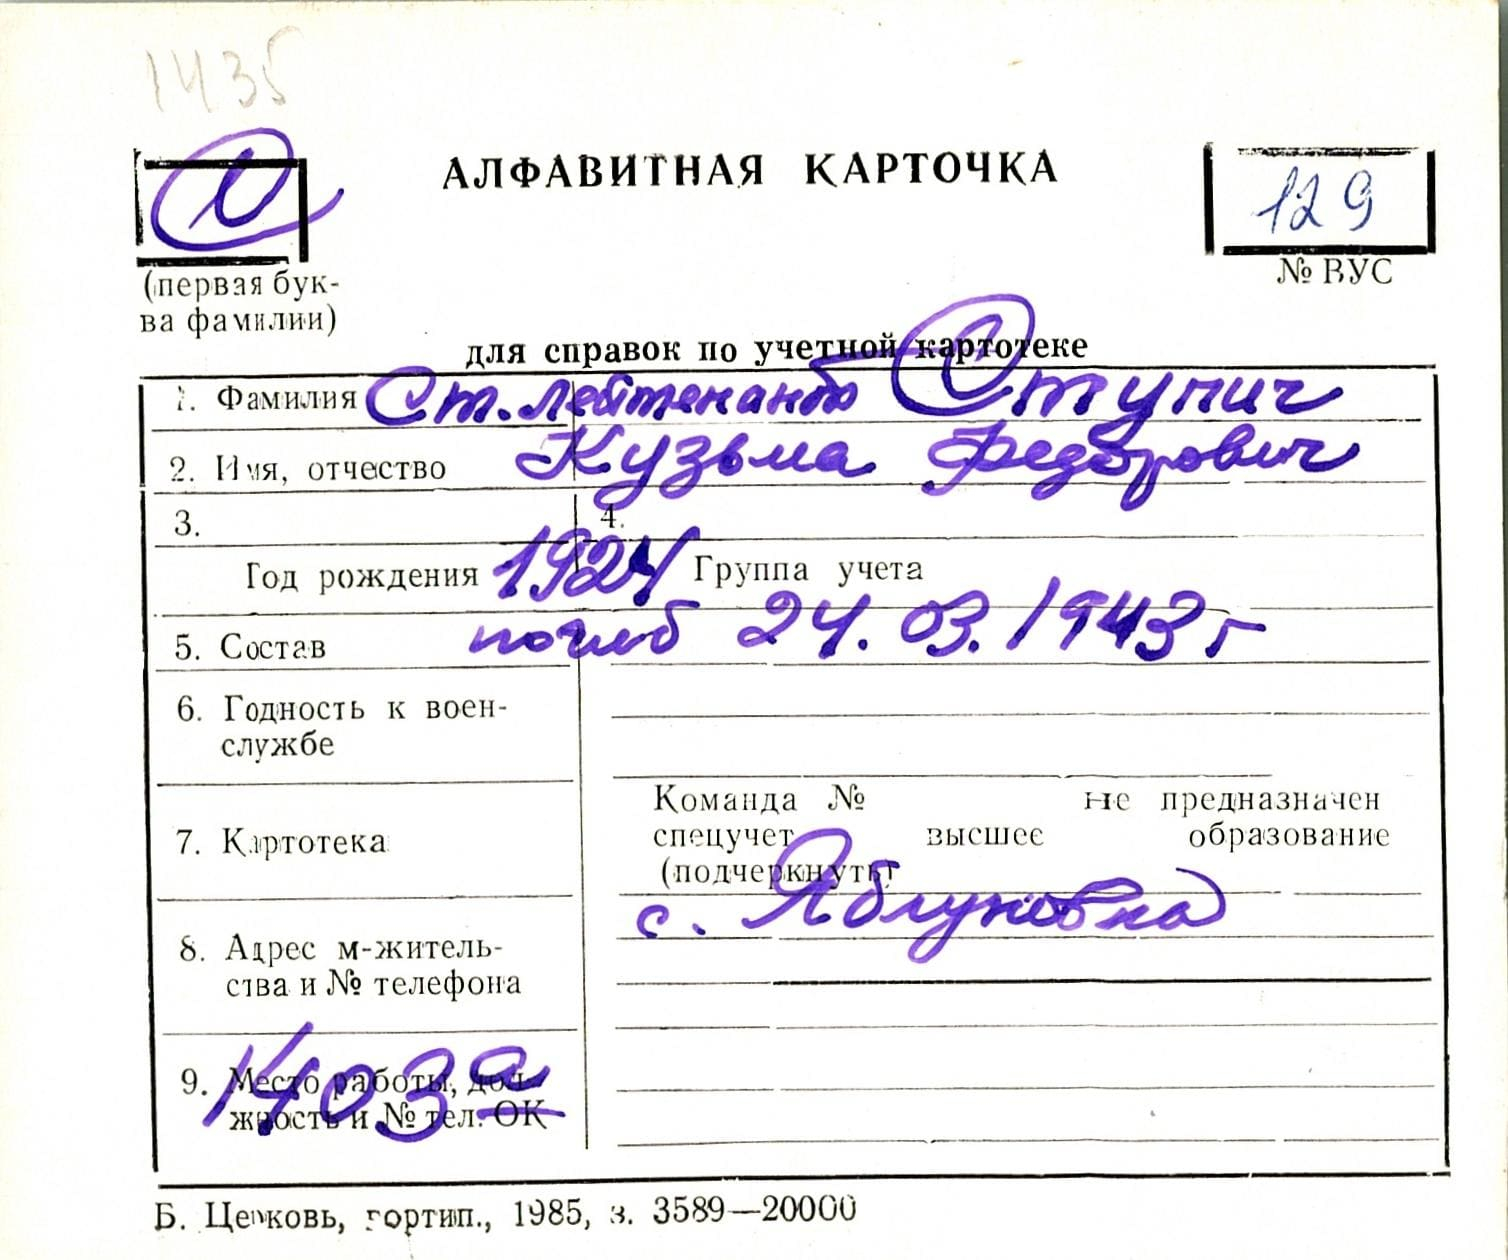 1435
АЛФАВИТНАЯ КАРТОЧКА
129
(первая бук-
ва фамилии)
№ ВУС
для справок по учетной картотеке
1. Фамилия Ст. лейтенант Ступич
2. Имя, отчество Кузьма Федорович
3. 4.
Год рождения 1924 Группа учета
5. Состав погиб 24.03.1943г
6. Годность к воен-
службе
Команда № не предназначен
7. Картотека спецучет высшее образование
(подчеркнуть)
с. Яблуновка
8. Адрес м-житель-
ства и № телефона
9. Место работы, дол-
жность и № тел. ОК
1403а
Б. Церковь, гортип., 1985, з. 3589—20000